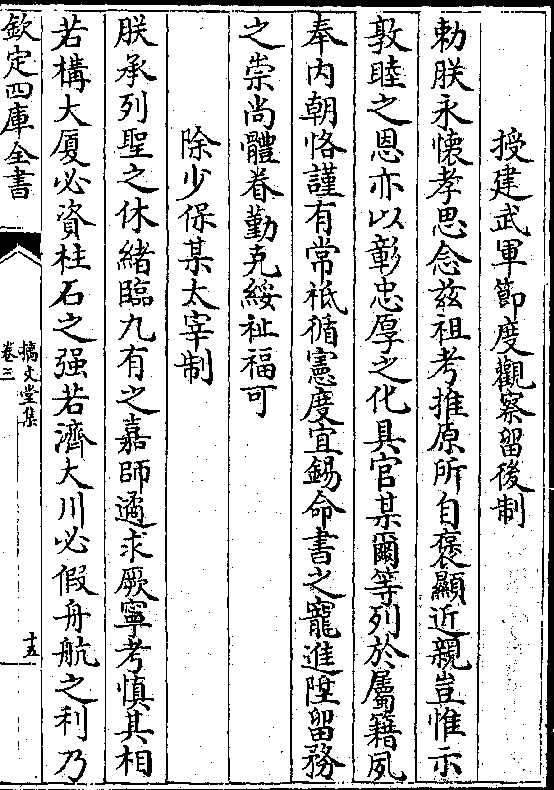 授建武軍節度觀察留後制
勅朕永懐孝思念兹祖考推原所自褒顯近親豈惟示
敦睦之恩亦以彰忠厚之化具官某爾等列於屬籍夙
奉内朝恪謹有常祗循憲度宜錫命書之寵進陞留務
之崇尚體眷勤克綏祉福可
除少保某太宰制
朕承列聖之休緒臨九有之嘉師遹求厥寧考慎其相
若構大厦必資柱石之强若濟大川必假舟航之利乃
欽定四庫全書
摛文堂集
卷三
十五